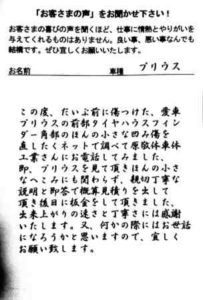 「お客さまの声」をお聞かせ下さい！
お客さまの喜びの声を聞くほど、仕事に情熱とやりがいを
与えてくれるものはありません。良い事、悪い事なんでも
結構です。ぜひ宜しくお願いいたします。
お名前 車種 プリウス
この度、だいぶ前に傷つけた、愛車
プリウスの前部タイヤハウスフィン
ダー角部のほんの小さな凹み傷を
直したくネットで調べて原敬体車体
工業さんにお電話してみました、
即、プリウスを見て頂きほんの小さ
なへこみにも関わらず、親切丁寧な
説明と即答で概算見積りを出して
頂き後日に板金をして頂きました、
出来上がりの速さと丁寧さには感謝
いたします。又、何かの際にはお世話
になろうかと思いますので、宜しく
お願い致します。